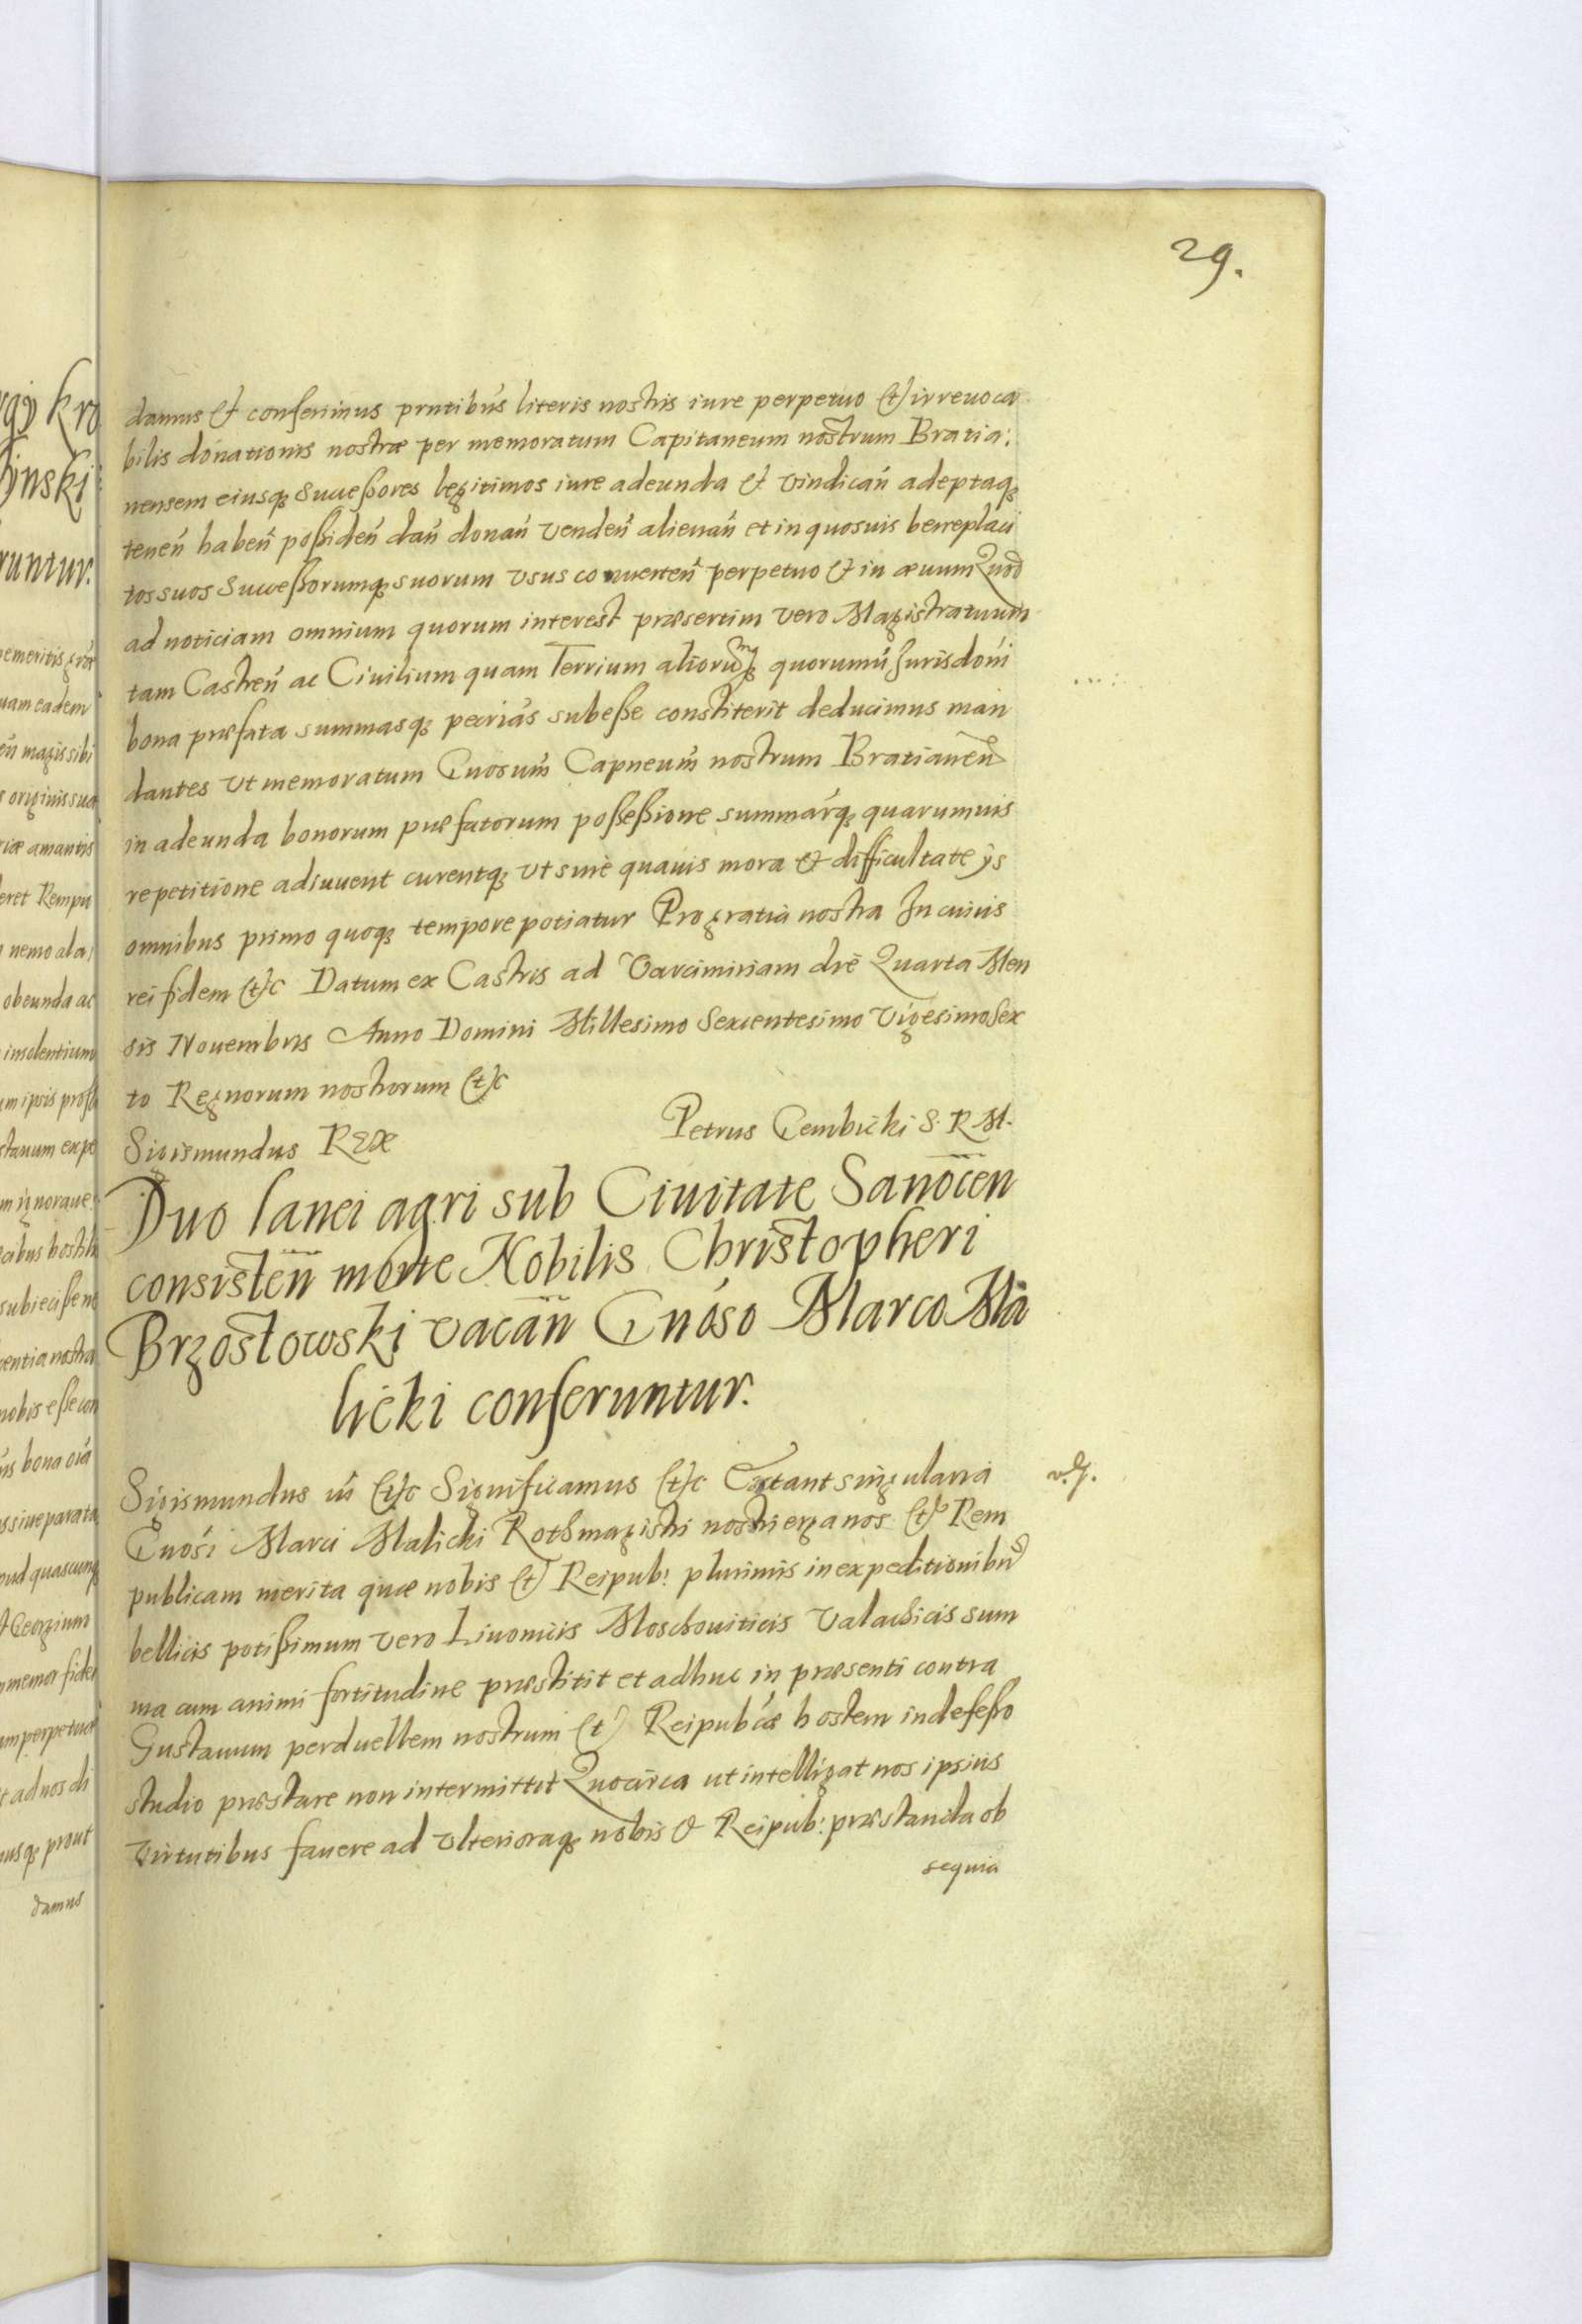 29.
damus et conferimus prntibus literis nostris iure perpetuo et irreuoca
bilis donationis nostræ per memoratum Capitaneum nostrum Bratia:
nensem eiusq; Successores legitimos iure adeunda et vindican adeptaq;
tenen haben possiden dan donan venden alienan et in quosuis beneplaci
tos suos Successorumq; suorum vsus conuerten perpetuo et in æuum Quod
ad noticiam omnium quorum interest præsertim vero Magistratuum
tam Castren ac Ciuilium quam Terrium aliorumq; quorumũ Jurisdoni
bona præfata summasq; pecrias subesse constiterit deducimus man
dantes vt memoratum Gnosum Capneum nostrum Bratianen
in adeunda bonorum præfatorum possessione summarq; quarumuis
repetitione adiuuent curentq; vt sine quauis mora et difficultate ijs
omnibus primo quoq; tempore potiatur Pro gratia nostra In cuius
rei fidem etc Datum ex Castris ad Varcimiriam die Quarta Men
sis Nouembris Anno Domini Millesimo Sexcentesimo Vigesimo Sex
to Regnorum nostrorum etc
Sigismundus Rex
Petrus Gembicki S. R. M.
Duo lanei agri sub Ciuitate Sanocen
consisten morte Nobilis Christopheri
Brzostowski vacan Gnoso Marco Ma
licki conferuntur.
Sigismundus etc Significamus etc Extant singularia
v. g.
Gnosi Marci Malicki Rothmagistri nostri erga nos et Rem
publicam merita quæ nobis et Reipub: plurimis in expeditionibus
bellicis potissimum vero Liuonicis Moschouiticis Valachicis sum
ma cum animi fortitudine præstitit et adhuc in præsenti contra
Gustauum perduellem nostrum et Reipubcæ hostem indefesso
studio præstare non intermittit Quocirca ut intelligat nos ipsius
virtutibus fauere ad vlterioraq; nobis et Reipub: præstanda ob
sequia